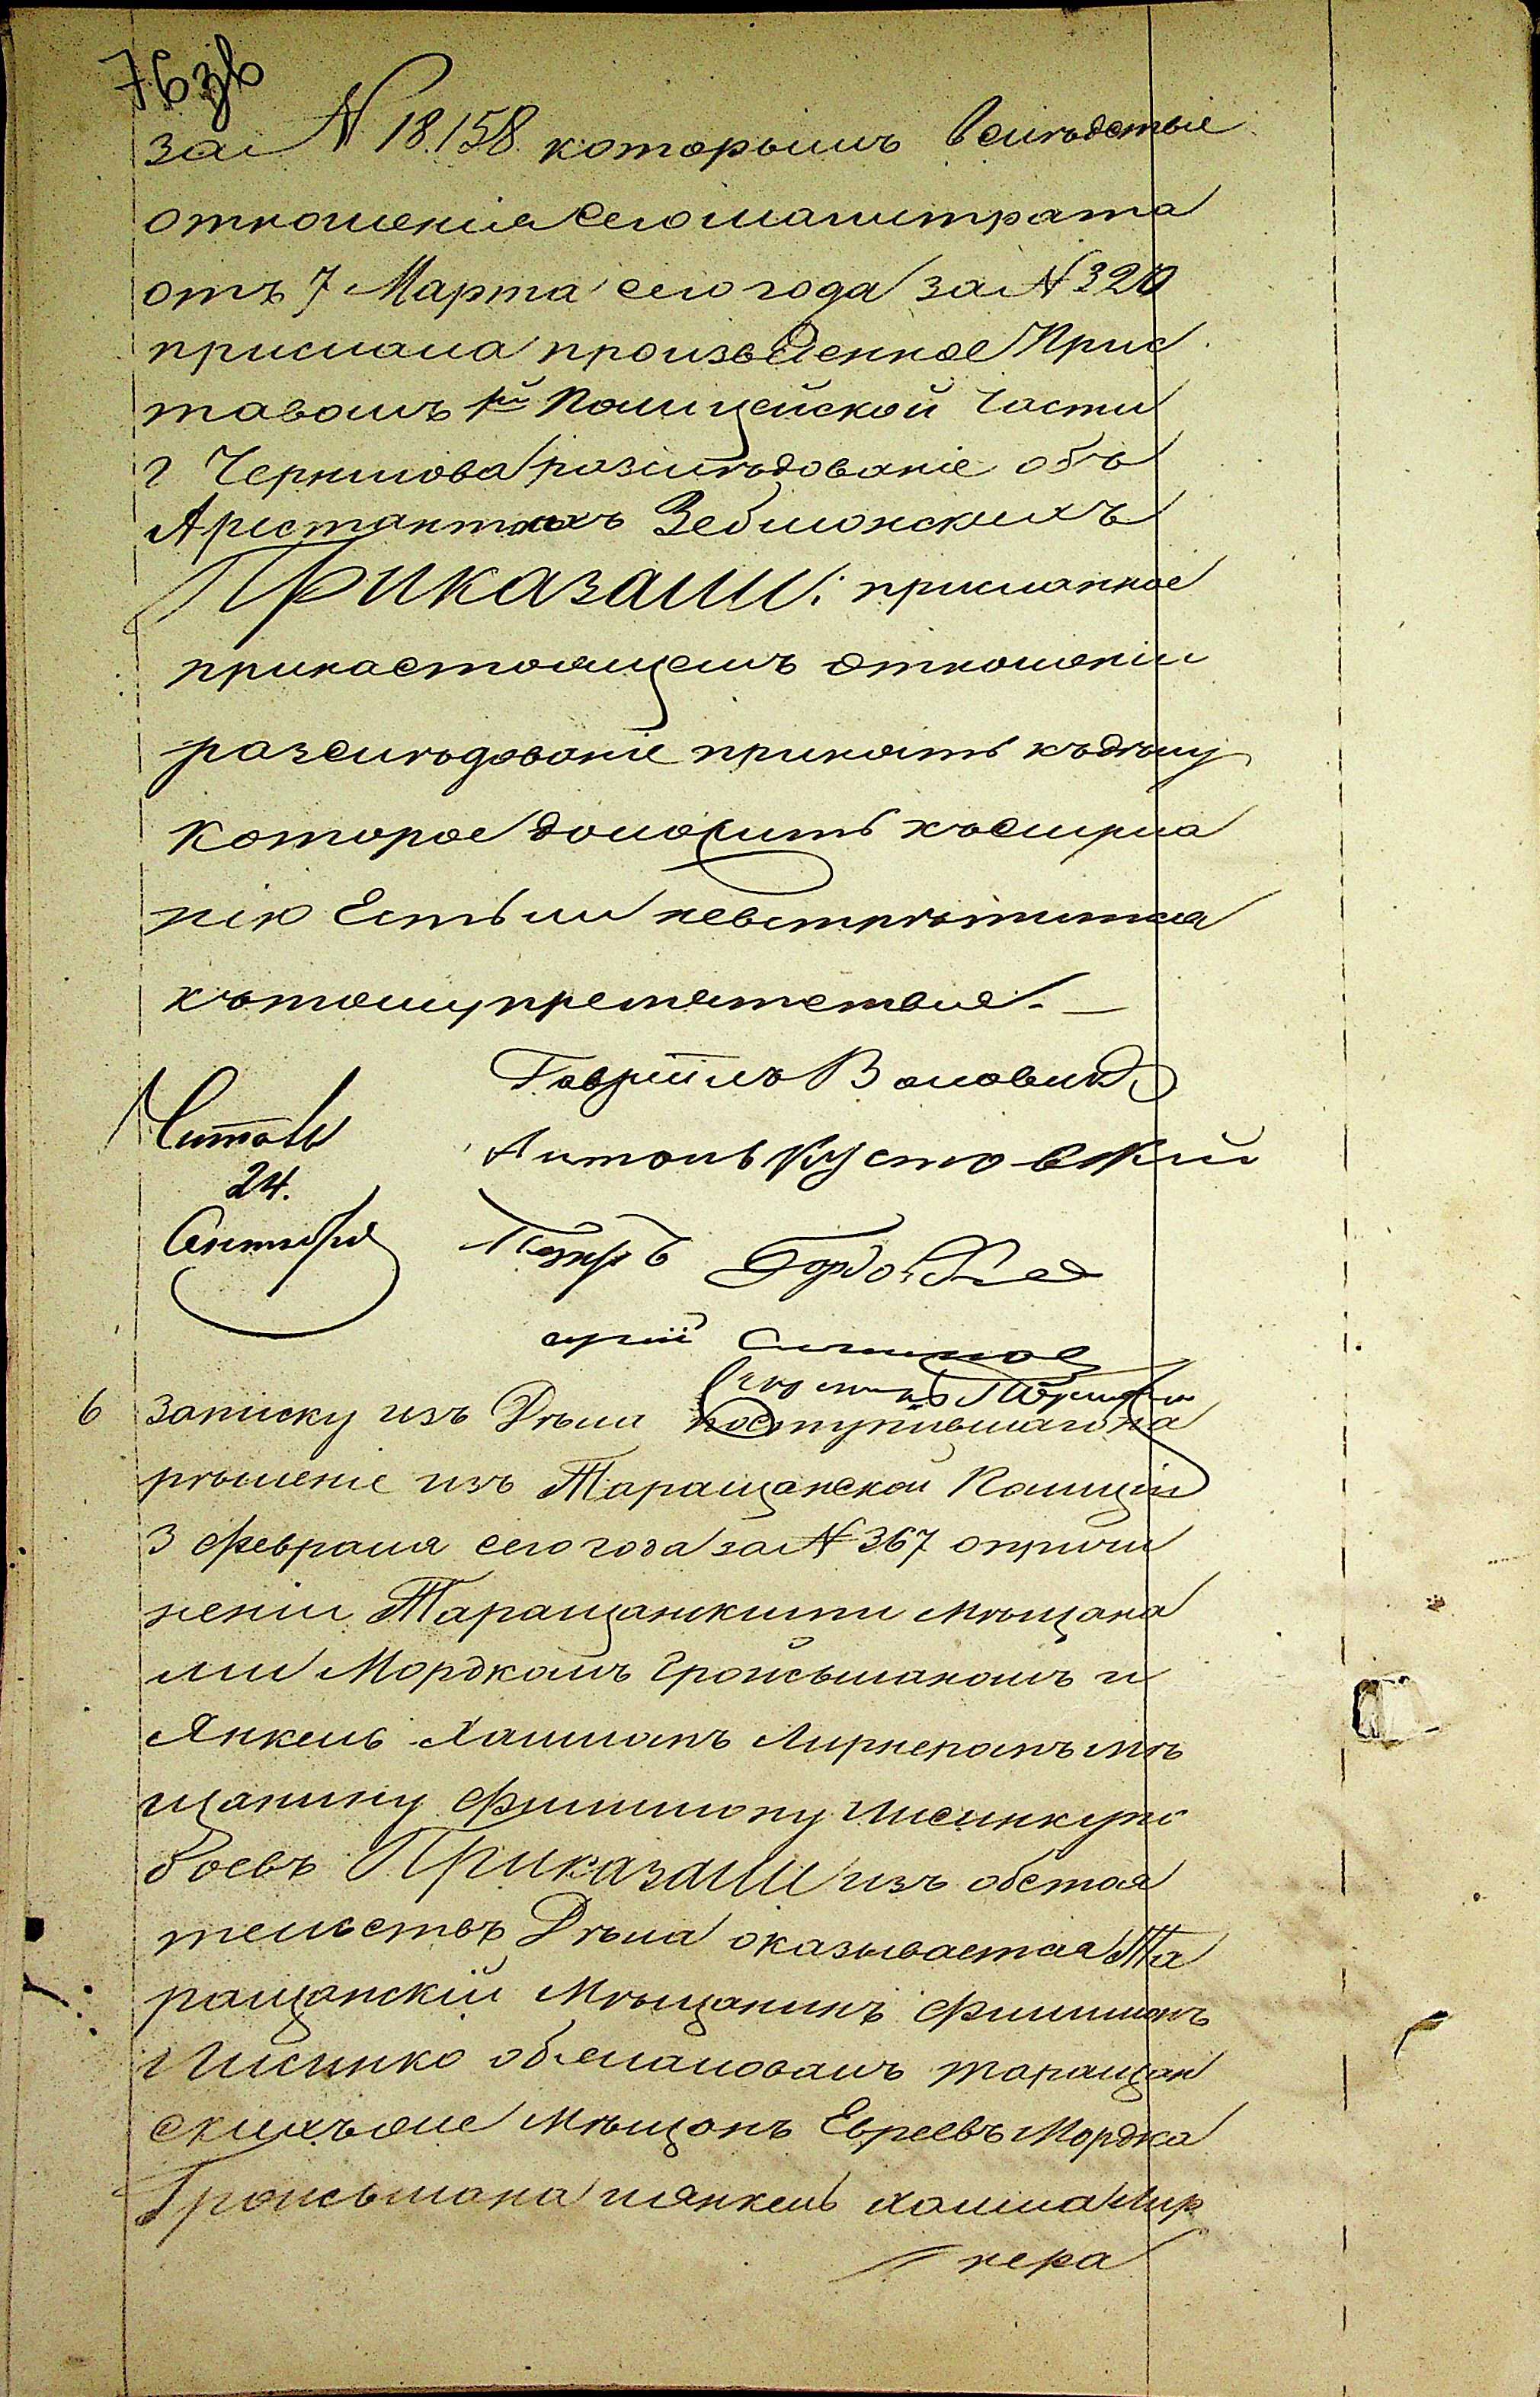 76 зв
за N 18.158. которымъ вслѣдствіе
отношенія сего магистрата
отъ 7 Марта сего года за N 320
прислана произведенное Прис
тавомъ 1й Полицейской Части
г Чернигова разслѣдованіе объ
Арестантахъ Зеблонскихъ
Приказали: присланное
принастоящемъ отношеніи
разслѣдованіе принять къдѣлу
которое доложить къслуша
нію Естьли невстрѣтится
кътому препятствія. —
Гавріилъ Воловик
Антонъ Кустовскій
Читалъ
24.
Сентября
Петръ
6 Записку изъ Дѣла поступившаго на
рѣшеніе изъ Таращанской Полиціи
3 февраля сего года за N 367 опричи
неніи Таращанскими мѣщана
ми Мордкомъ Гройсьманомъ и
Янкель Хаимомъ Лирнеромъ мѣ
щанину Филимону Лисинку по
боевъ Приказали изъ обстоя
тельствъ Дѣла оказывается Та
ращанскій Мѣщанинъ Филимонъ
Лисинко обжаловалъ таращан
скихъ же Мѣщанъ Евреевъ Мордка
Гройсьмана иянкель хаима Лир
нера